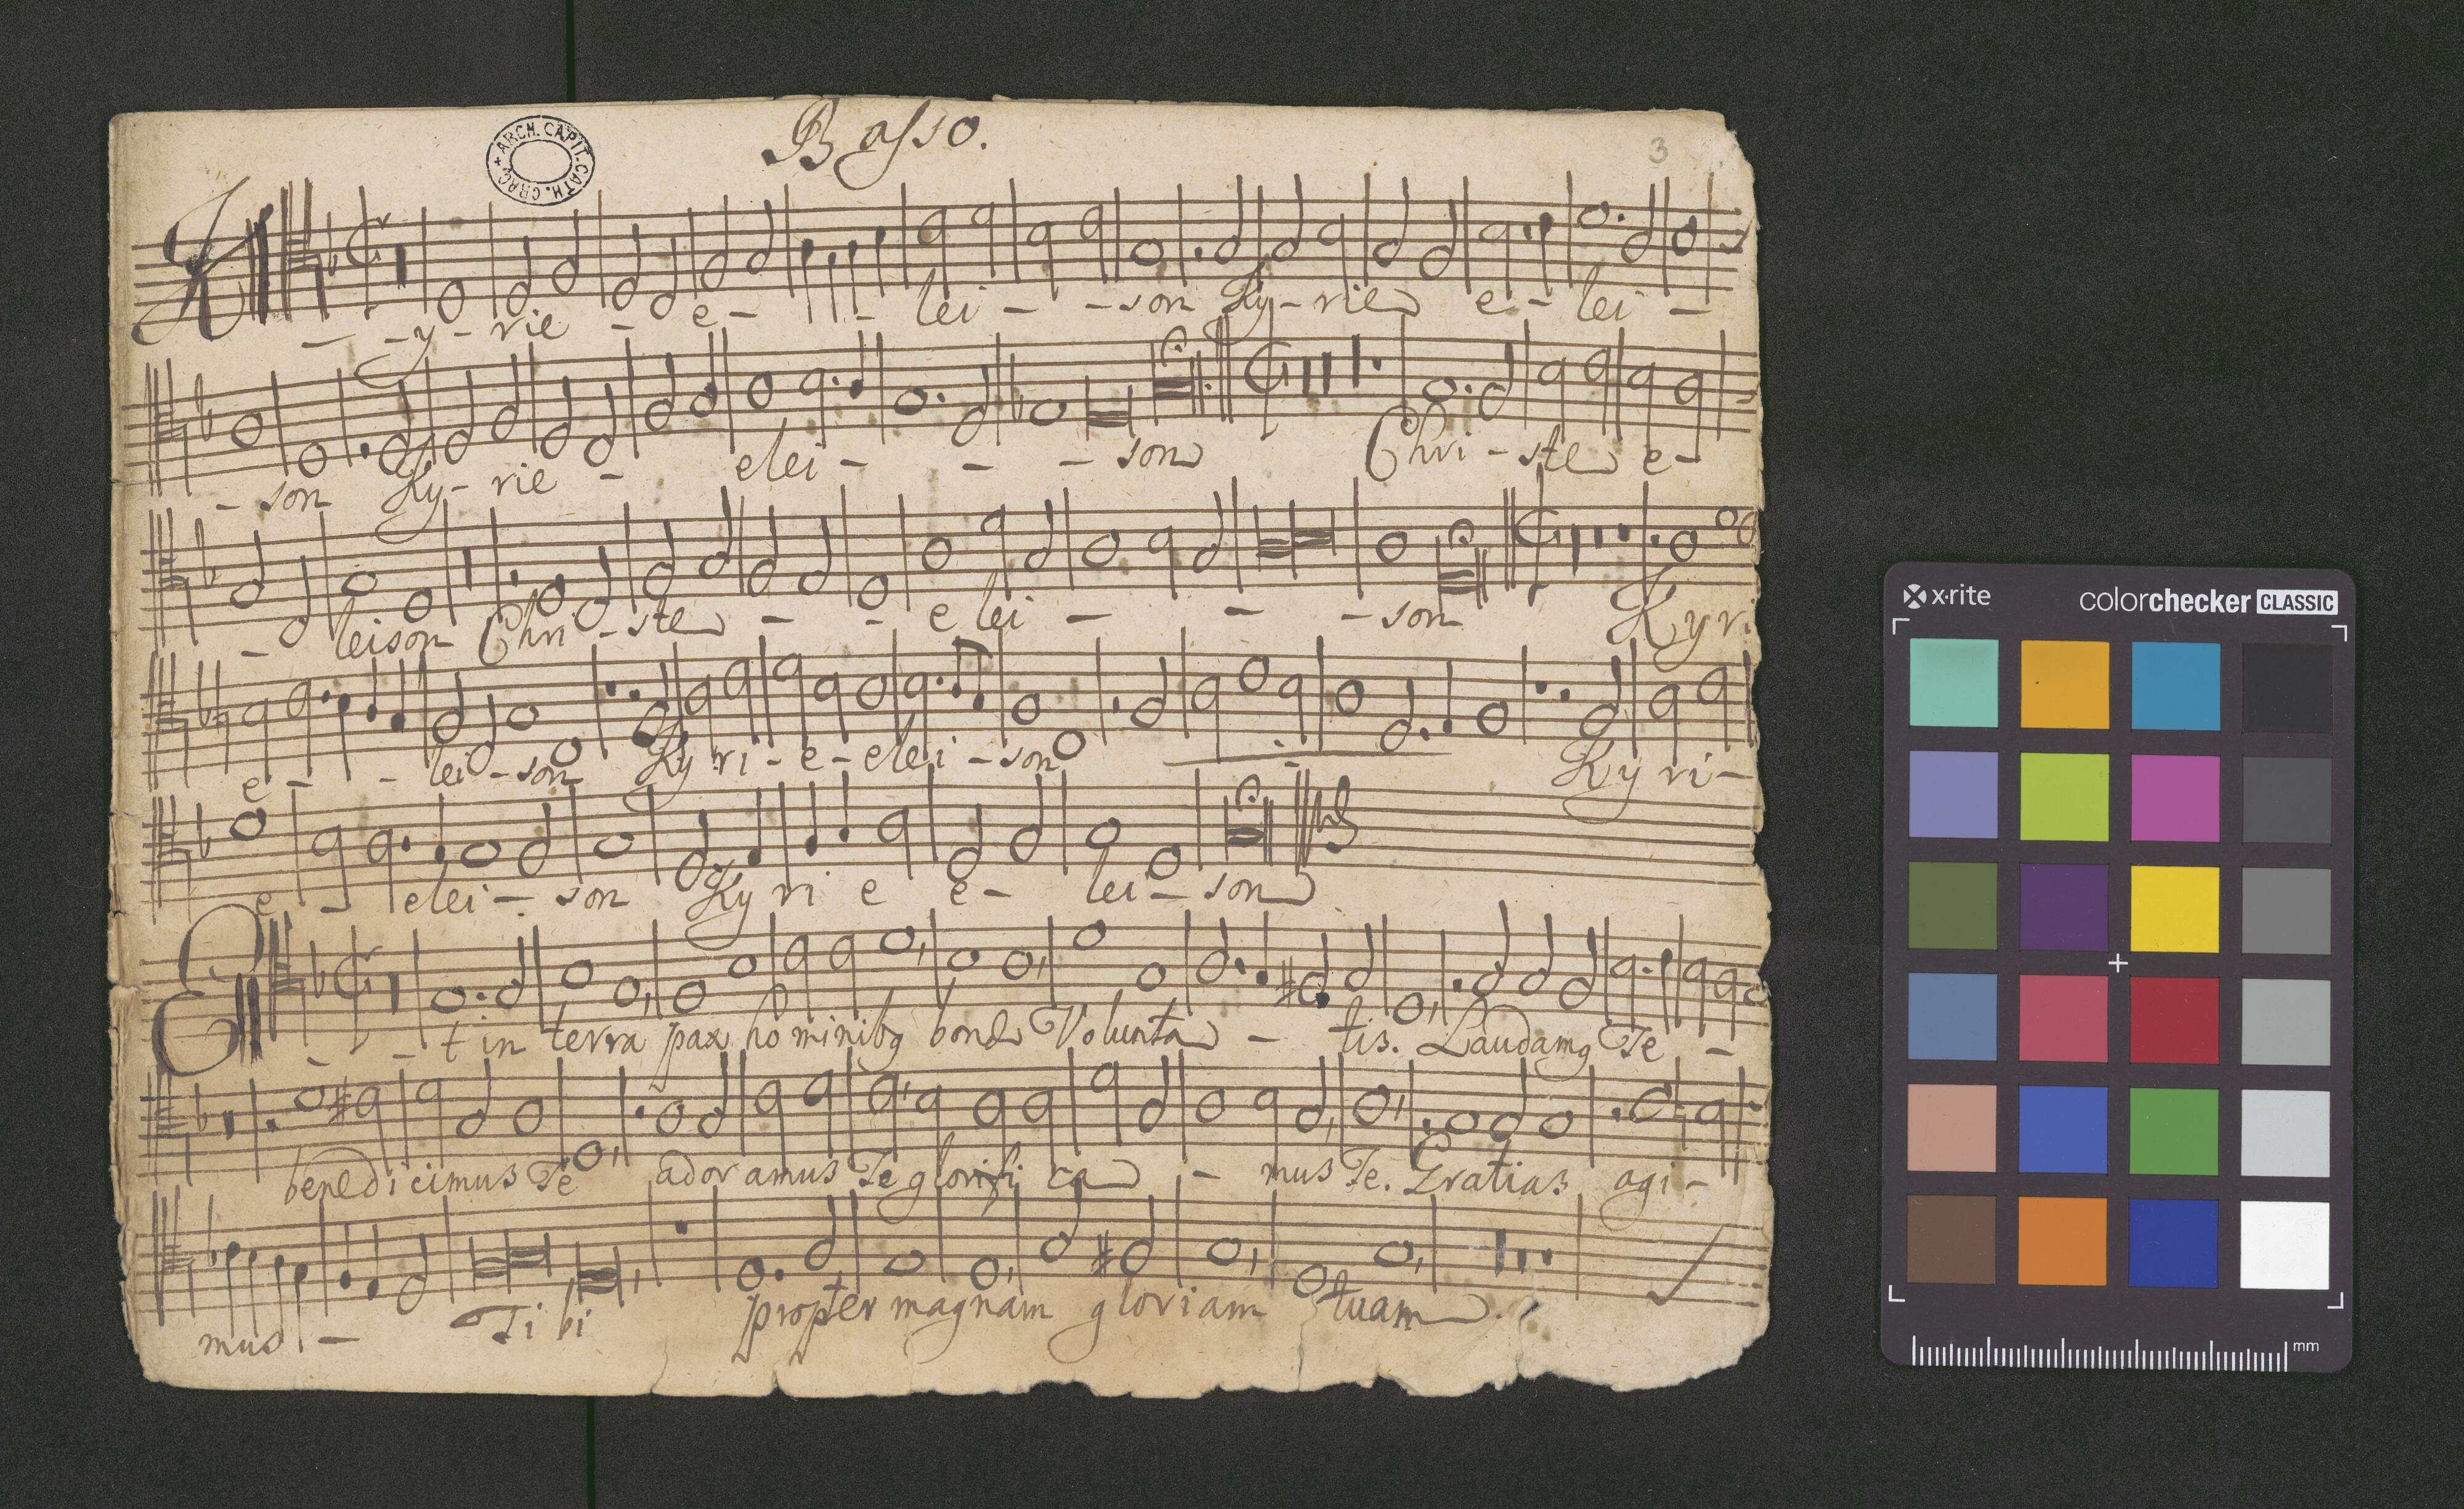 Basso.
ARCH. CAPIT. CATH. CRAC.
3
K - - y - rie - e - - lei - - son Ky - rie e - lei -
- son Ky - rie - elei - - - son Chri - ste e -
- leison Chri - ste - - e lei - - - son Kyri
e - - lei - son Ky ri - e - elei - son - Ky ri -
e - elei - son Ky ri e e - lei - son
E - - t in terra pax hominibꝯ bone Volunta - tis. Laudamꝯ Te -
benedicimus Te adoramus Te glorifi ca - mus Te. Gratias agi -
mus - Tibi propter magnam gloriam tuam.
x-rite
colorchecker CLASSIC
mm